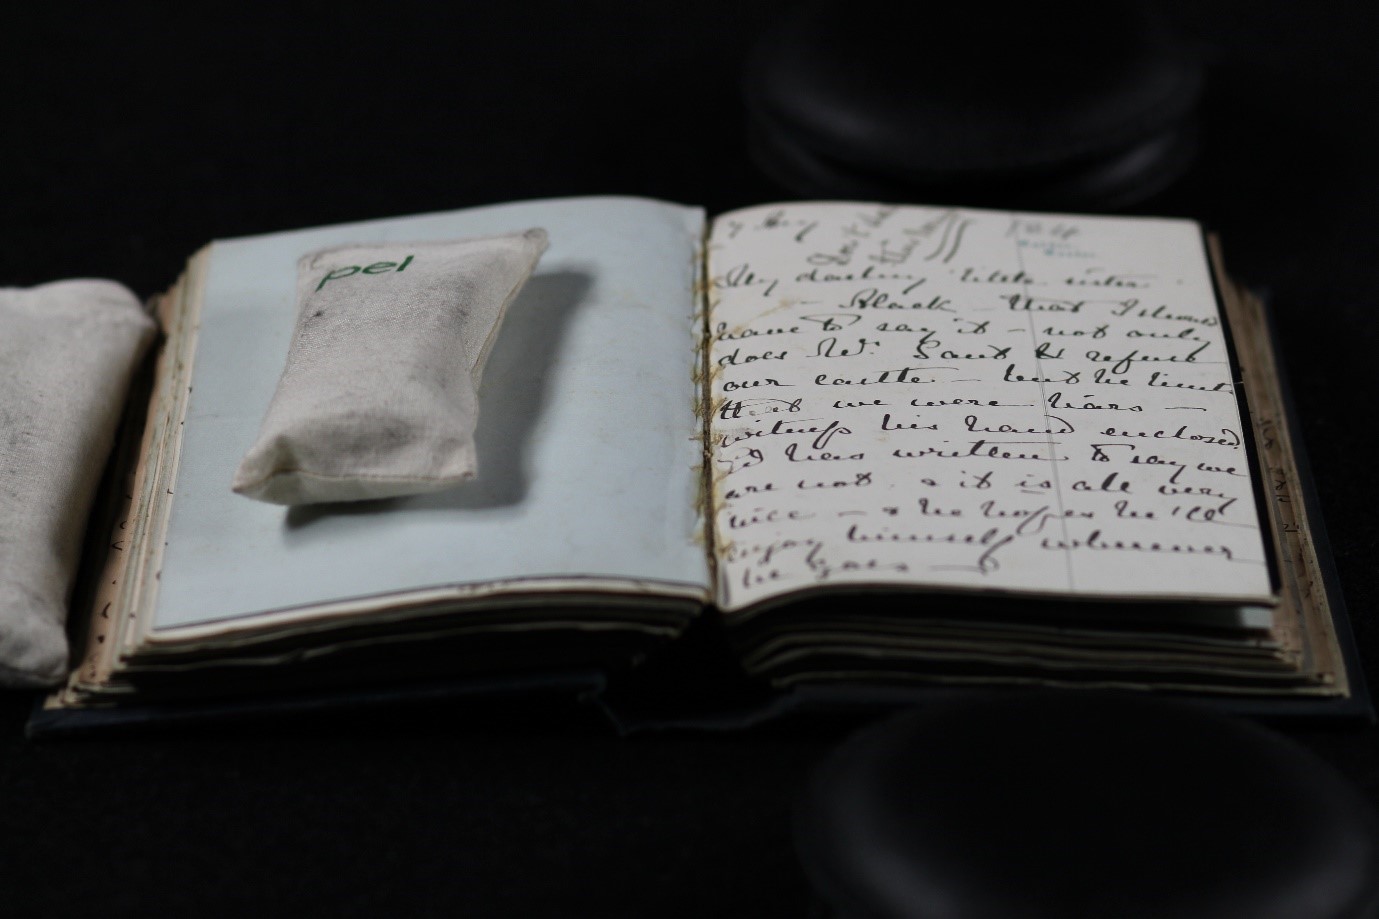 pel
My darling little sister
– Black – that I should
have to say it – not only
does Mr. Sant refuse
our castle – but he
that we were liars –
witness his hand enclosed
has written to say we
are not. & it is all very
nice – & he hopes he'll
enjoy himself wherever
he goes –